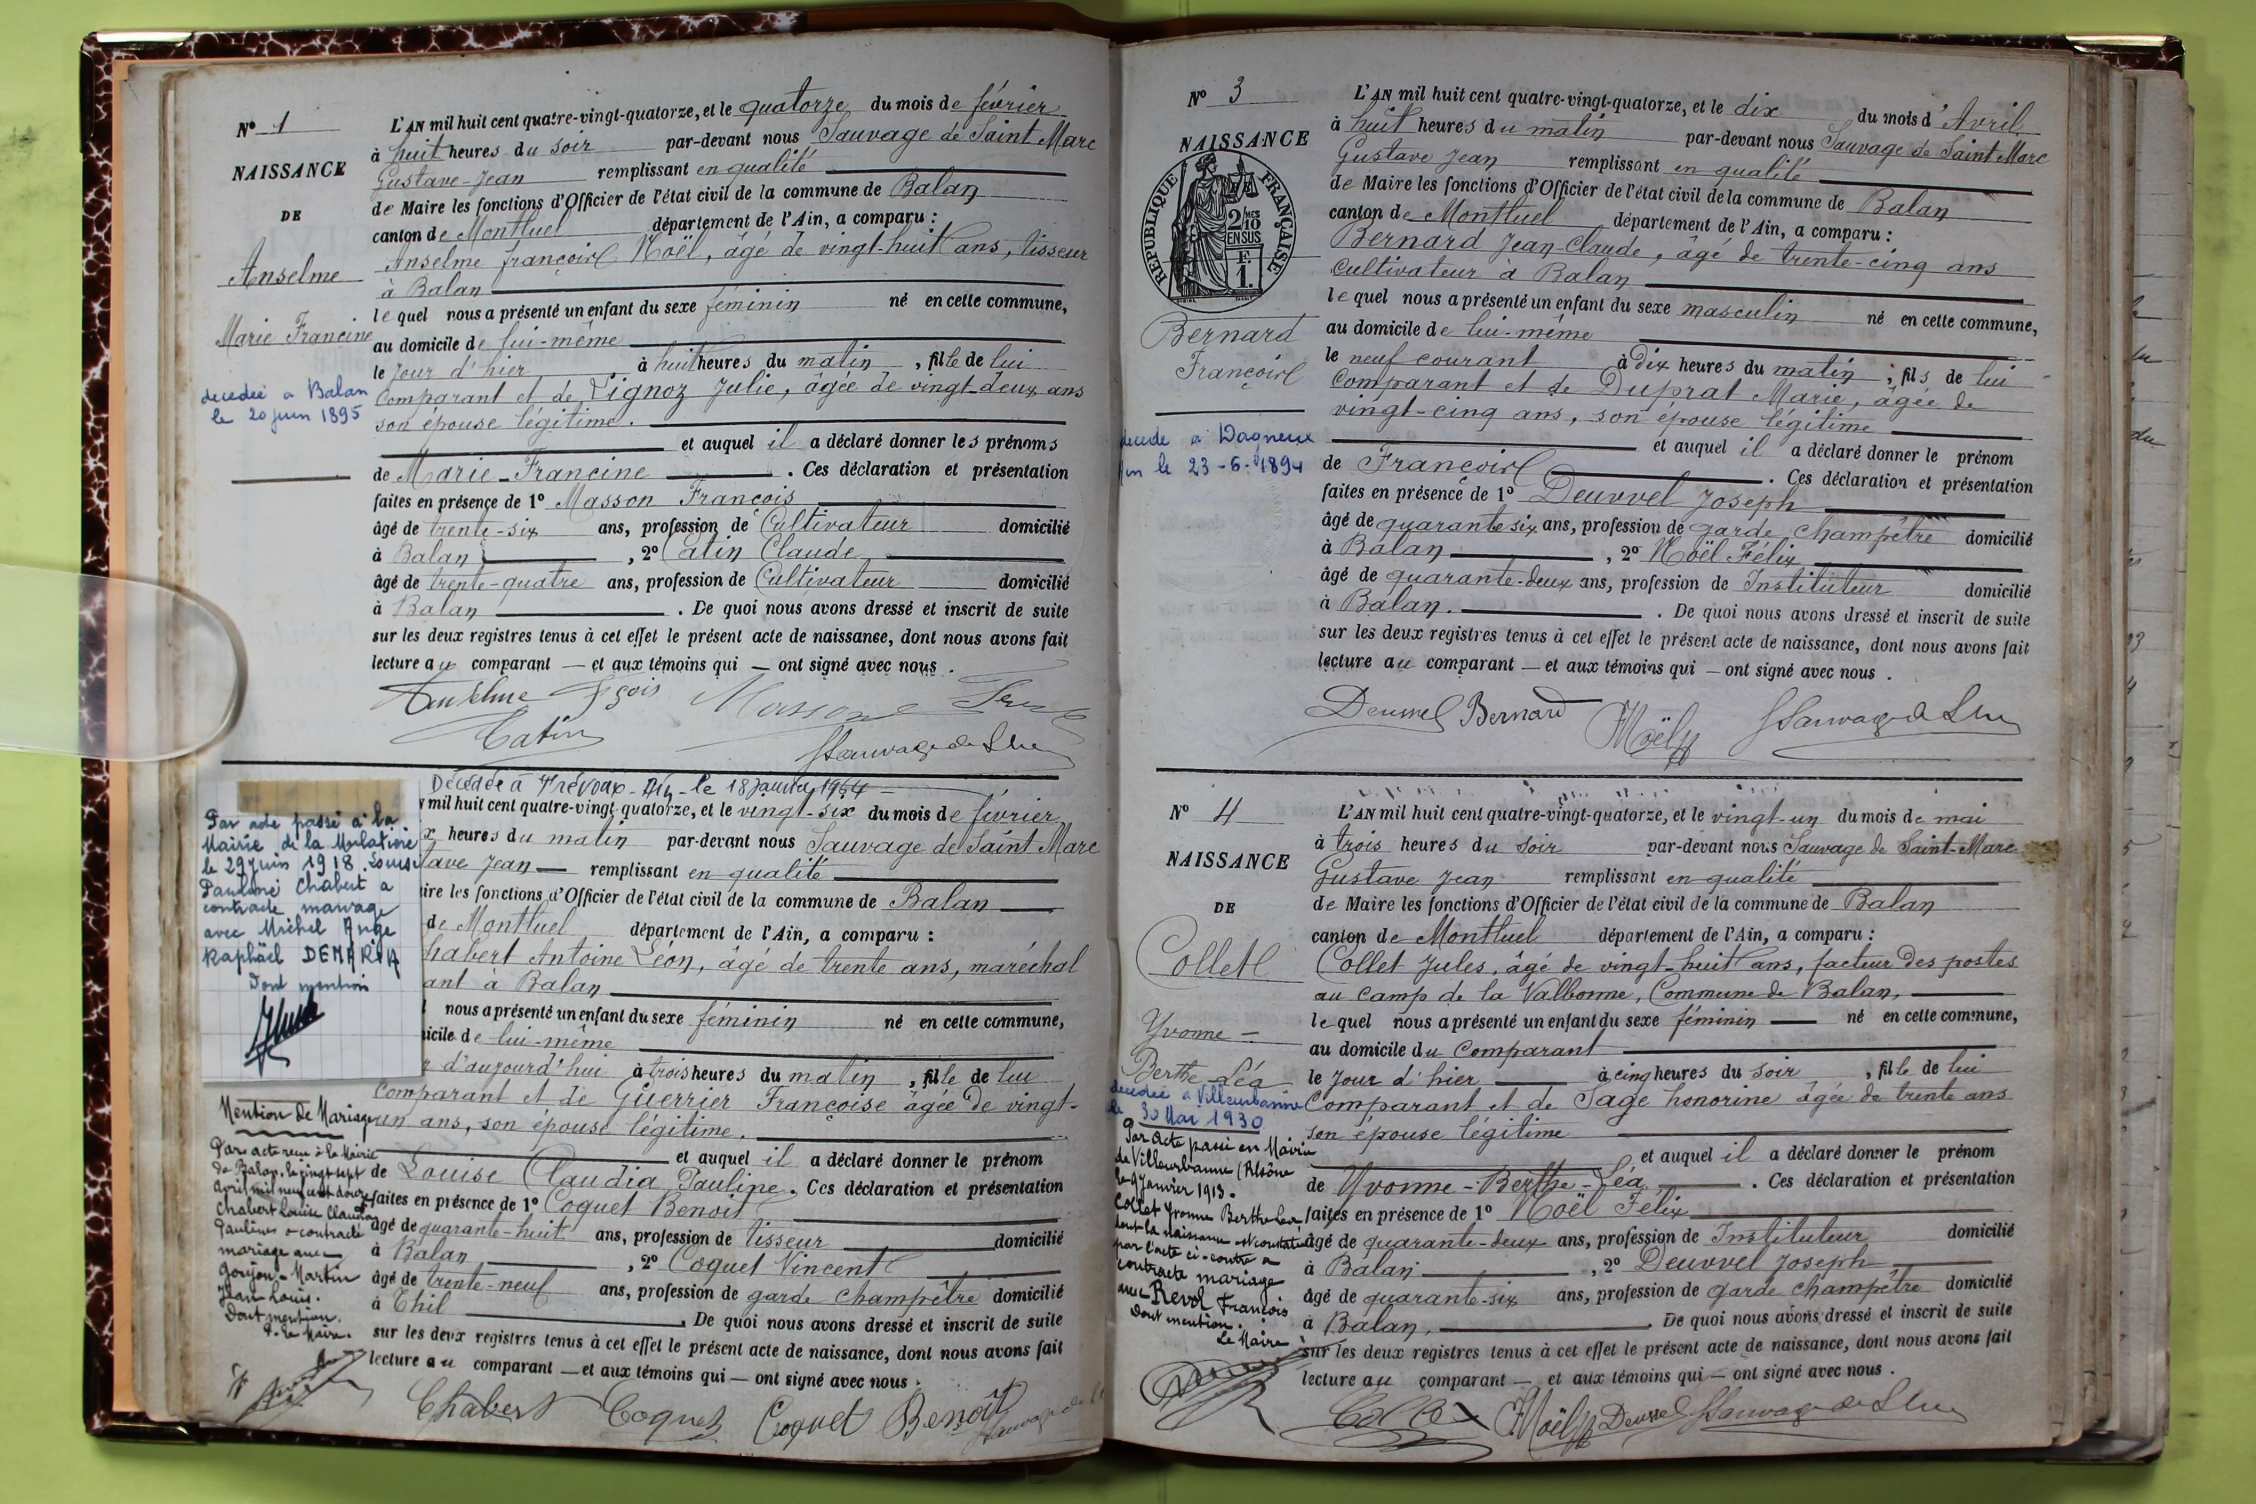 N° 1
NAISSANCE
DE
Anselme
Marie Francine
décédée a Balan
le 20 juin 1895
L'AN mil huit cent quatre-vingt-quatorze, et le quatorze du mois de février
à huit heures du soir par-devant nous Sauvage de Saint Marc
Gustave-Jean remplissant en qualité
de Maire les fonctions d'Officier de l'état civil de la commune de Balan
canton de Montluel département de l'Ain, a comparu :
Anselme françois Noël, âgé de vingt-huit ans, tisseur
à Balan
lequel nous a présenté un enfant du sexe féminin né en cette commune,
au domicile de lui-même
le jour d'hier à huit heures du matin, fille de lui
comparant et de Lignoz Julie, âgée de vingt-deux ans
son épouse légitime.
et auquel il a déclaré donner les prénoms
de Marie-Francine. Ces déclaration et présentation
faites en présence de 1° Masson François
âgé de trente-six ans, profession de Cultivateur domicilié
à Balan, 2° Catin Claude
âgé de trente-quatre ans, profession de Cultivateur domicilié
à Balan. De quoi nous avons dressé et inscrit de suite
sur les deux registres tenus à cet effet le présent acte de naissance, dont nous avons fait
lecture au comparant — et aux témoins qui — ont signé avec nous.
Anselme fçois Masson
Catin
Décédée à Trévoux - Ain - le 18 Janvier 1964
Par acte passé à la
Mairie de la Mulatière
le 29 juin 1918 Louise
Pauline Chabert a
contracté mariage
avec Michel Ange
Raphäel DEMARIA
Dont mention
Mention de Mariage
Par acte reçu à la Mairie
de Balan, le vingt sept
Avril mil neuf cent douze
Chabert Louise Claudia
Pauline a contracté
mariage avec
Goujon-Martin
Jean Louis.
Dont mention.
P. le Maire.
mil huit cent quatre-vingt-quatorze, et le vingt-six du mois de février
x heures du matin par-devant nous Sauvage de Saint Marc
tave Jean — remplissant en qualité
ire les fonctions d'Officier de l'état civil de la commune de Balan
de Montluel département de l'Ain, a comparu :
habert Antoine Léon, âgé de trente ans, maréchal
ant à Balan
nous a présenté un enfant du sexe féminin né en cette commune,
icile de lui-même
r d'aujourd'hui à trois heures du matin, fille de lui
comparant et de Guerrier Françoise âgée de vingt-
un ans, son épouse légitime.
et auquel il a déclaré donner le prénom
de Louise Claudia Pauline. Ces déclaration et présentation
faites en présence de 1° Coquet Benoit
âgé de quarante-huit ans, profession de tisseur domicilié
à Balan, 2° Coquet Vincent
âgé de trente-neuf ans, profession de garde champêtre domicilié
à Thil. De quoi nous avons dressé et inscrit de suite
sur les deux registres tenus à cet effet le présent acte de naissance, dont nous avons fait
lecture au comparant — et aux témoins qui — ont signé avec nous.
Chabert Coquet Coquet Benoît
N° 3
NAISSANCE
RÉPUBLIQUE FRANÇAISE
2 MES
10
EN SUS
F.
1.
Bernard
François
décédé à Dagneux
Ain le 23-6-1894
L'AN mil huit cent quatre-vingt-quatorze, et le dix du mois d'Avril
à huit heures du matin par-devant nous Sauvage de Saint Marc
Gustave Jean remplissant en qualité
de Maire les fonctions d'Officier de l'état civil de la commune de Balan
canton de Montluel département de l'Ain, a comparu :
Bernard Jean-Claude, âgé de trente-cinq ans
cultivateur à Balan
lequel nous a présenté un enfant du sexe masculin né en cette commune,
au domicile de lui-même
le neuf courant à dix heures du matin, fils de lui
comparant et de Duprat Marie, âgée de
vingt-cinq ans, son épouse légitime
et auquel il a déclaré donner le prénom
de François. Ces déclaration et présentation
faites en présence de 1° Deuvvel Joseph
âgé de quarante six ans, profession de garde champêtre domicilié
à Balan, 2° Noël Félix
âgé de quarante-deux ans, profession de Instituteur domicilié
à Balan. De quoi nous avons dressé et inscrit de suite
sur les deux registres tenus à cet effet le présent acte de naissance, dont nous avons fait
lecture au comparant — et aux témoins qui — ont signé avec nous.
Bernard Noël
N° 4
NAISSANCE
DE
Collet
Yvonne -
Berthe-Léa
décédée à Villeurbanne
le 30 Mai 1930
Par Acte passé en Mairie
de Villeurbanne (Rhône
le 9 Janvier 1913.
Collet Yvonne Berthe Léa
dont la naissance est constatée
par l'acte ci-contre a
contracté mariage
avec Revol François
Dont mention.
Le Maire
L'AN mil huit cent quatre-vingt-quatorze, et le vingt-un du mois de mai
à trois heures du soir par-devant nous Sauvage de Saint-Marc
Gustave Jean remplissant en qualité
de Maire les fonctions d'Officier de l'état civil de la commune de Balan
canton de Montluel département de l'Ain, a comparu :
Collet Jules, âgé de vingt-huit ans, facteur des postes
au camp de la Valbonne, Commune de Balan,
lequel nous a présenté un enfant du sexe féminin — né en cette commune,
au domicile du comparant
le jour d'hier à cinq heures du soir, fille de lui
comparant et de Sage honorine âgée de trente ans
son épouse légitime
et auquel il a déclaré donner le prénom
de Yvonne-Berthe-Léa. Ces déclaration et présentation
faites en présence de 1° Noël Félix
âgé de quarante-deux ans, profession de Instituteur domicilié
à Balan, 2° Deuvvel Joseph
âgé de quarante-six ans, profession de garde champêtre domicilié
à Balan, De quoi nous avons dressé et inscrit de suite
sur les deux registres tenus à cet effet le présent acte de naissance, dont nous avons fait
lecture au comparant — et aux témoins qui — ont signé avec nous.
Collet Noël